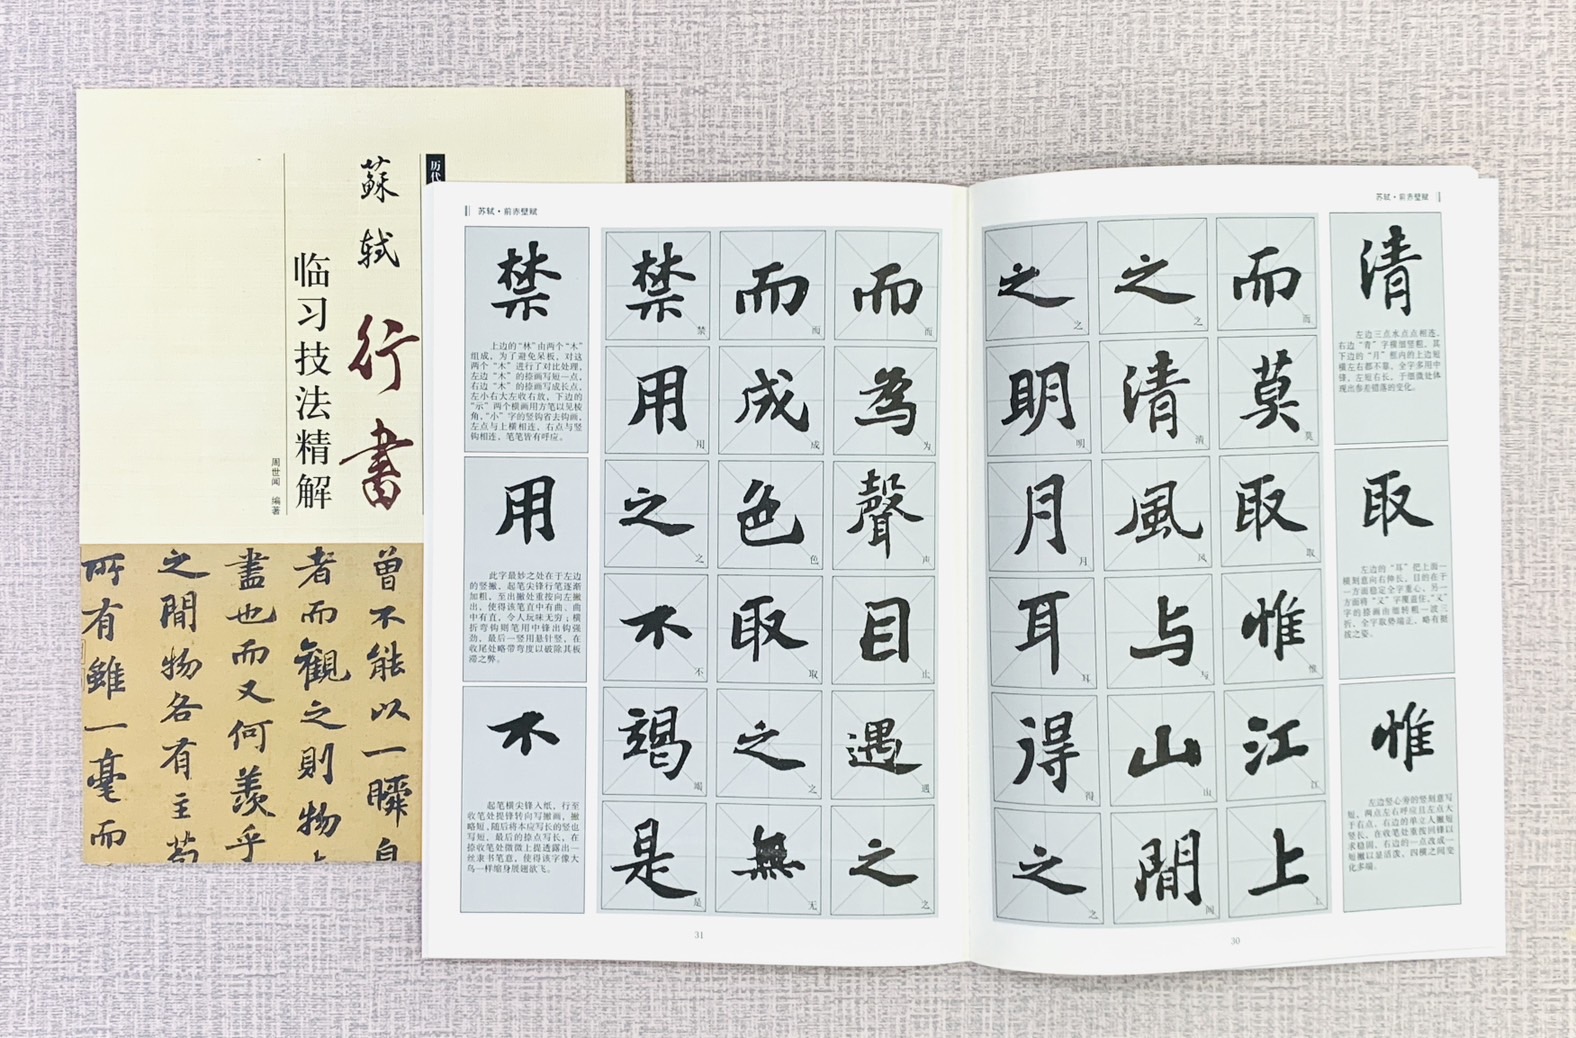 历代
蘇軾行書
临习技法精解
周世闻 编著
曾不能以一瞬自
者而觀之則物
盡也而又何羨乎
之間物各有主苟
所有雖一毫而
苏轼·前赤壁赋
清
左边三点水点点相连，
右边“青”字横细竖粗，其
下边的“月”框内的上边短
横左右都不靠，全字多用中
锋，左短右长，于细微处体
现出参差错落的变化。
取
左边的“耳”把上面一
横刻意向右伸长，目的在于
一方面稳定全字重心，另一
方面将“又”字覆盖住，“又”
字的捺画由细转粗一波三
折，全字取势端正，略有挺
拔之姿。
惟
左边竖心旁的竖刻意写
短，两点左右呼应且左点大
于右点，右边的单立人撇短
竖长，在收笔处重按回锋以
求稳固，右边的一点改成一
短撇以显活泼，四横之间变
化多端。
而莫取惟江上
而莫取惟江上
之清風与山間
之清风与山间
之明月耳得之
之明月耳得之
30
苏轼·前赤壁赋
而為聲目遇之
而为声遇之
而成色取之無
而成色取之无
禁用之不竭是
禁用之不竭是
禁
上边的“林”由两个“木”
组成，为了避免呆板，对这
两个“木”进行了对比处理，
左边“木”的捺画写短一点，
右边“木”的捺画写成长点，
左小右大左收右放，下边的
“示”两个横画用方笔以见棱
角，“小”字的竖钩省去钩画，
左点与上横相连，右点与竖
钩相连，笔笔皆有呼应。
用
此字最妙之处在于左边
的竖撇，起笔尖锋行笔逐渐
加粗，至出撇处重按向左撇
出，使得该笔直中有曲、曲
中有直，令人玩味无穷；横
折弯钩则笔用中锋出钩强
劲，最后一竖用悬针竖，在
收尾处略带弯度以破除其板
滞之弊。
不
起笔横尖锋入纸，行至
收笔处提锋转向写撇画，撇
略短，随后将本应写长的竖也
写短，最后的捺点写长，在
捺收笔处微微上提透露出一
丝隶书笔意，使得该字像大
鸟一样缩身展翅欲飞。
31